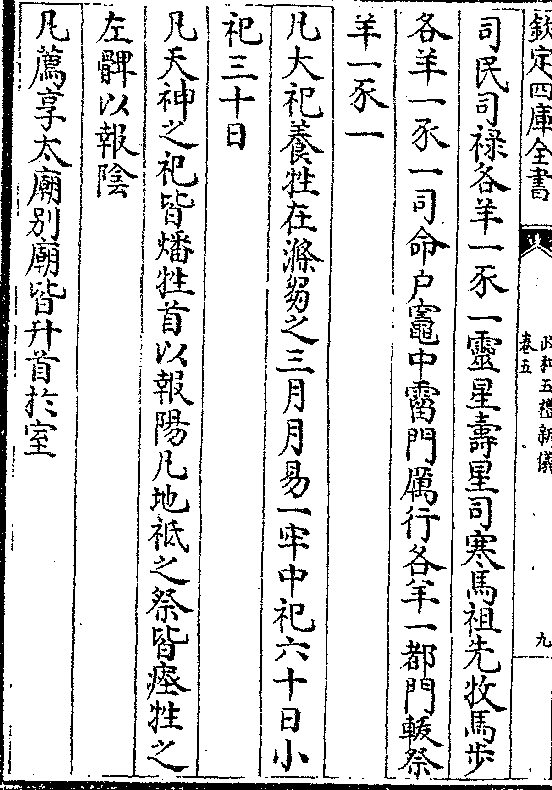 欽定四庫全書
政和五禮新儀
卷五
九
司民司禄各羊一豕一靈星壽星司寒馬祖先牧馬步
各羊一豕一司命户竈中霤門厲行各羊一都門軷祭
羊一豕一
凡大祀養牲在滌芻之三月月易一牢中祀六十日小
祀三十日
凡天神之祀皆燔牲首以報陽凡地祇之祭皆瘞牲之
左髀以報陰
凡薦享太廟别廟皆升首於室